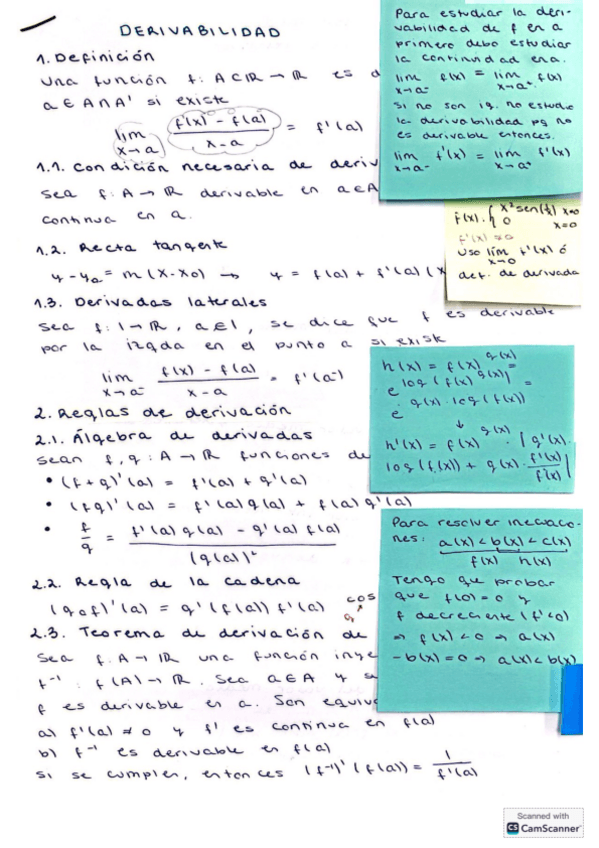 DERIVABILIDAD
1. Definición
Una función f: A⊂ℝ → ℝ es d
a ∈ A∩A' si existe
lim x→a (f(x) - f(a))/(x-a) = f'(a)
1.1. Condición necesaria de deriv
Sea f: A → ℝ derivable en a∈A
continua en a.
1.2. Recta tangente
y-ya = m(x-x0) → y = f(a) + f'(a)(x
1.3. Derivadas laterales
Sea f: I → ℝ, a∈I, se dice que f es derivable
por la izqda en el punto a si exist
lim x→a⁻ (f(x) - f(a))/(x-a) = f'(a⁻)
2. Reglas de derivación
2.1. Álgebra de derivadas
Sean f, g: A → ℝ funciones de
• (f+g)'(a) = f'(a) + g'(a)
• (fg)'(a) = f'(a)g(a) + f(a)g'(a)
• f/g = (f'(a)g(a) - g'(a)f(a))/(g(a))²
2.2. Regla de la cadena
(g∘f)'(a) = g'(f(a)) f'(a)
cos
2.3. Teorema de derivación de
Sea f: A → ℝ una función inye
f⁻¹: f(A) → ℝ. Sea a∈A y s
f es derivable en a. Son equiv
a) f'(a) ≠ 0 y f' es continua en f(a)
b) f⁻¹ es derivable en f(a)
Si se cumplen, entonces (f⁻¹)'(f(a)) = 1/f'(a)
Para estudiar la deri-
vabilidad de f en a
primero debo estudiar
la continuidad en a.
lim x→a⁻ f(x) = lim x→a⁺ f(x)
Si no son ig. no estudio
la derivabilidad pq no
es derivable entonces.
lim x→a⁻ f'(x) = lim x→a⁺ f'(x)
f(x) { x² sen(1/x) x≠0
0 x=0
f'(x) ≠ 0
Uso lim x→0 f'(x) ó
def. de derivada
h(x) = f(x)^g(x)
e^log(f(x)^g(x)) =
e^g(x)·log(f(x))
↓
h'(x) = f(x)^g(x) · [g'(x)·
log(f(x)) + g(x)· f'(x)/f(x)]
Para resolver inecuacio-
nes: a(x) < b(x) < c(x)
f(x) h(x)
Tengo que probar
que f(0) = 0 y
f decreciente (f'<0)
⇒ f(x) < 0 ⇒ a(x)
-b(x) = 0 ⇒ a(x) < b(x)
Scanned with
CS CamScanner